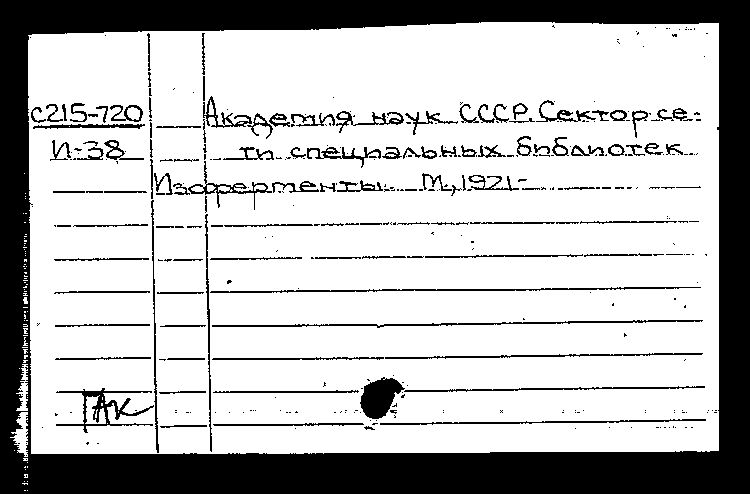 С215-720 Академия наук СССР. Сектор се-
И-38 ти специальных библиотек
Изоферменты. М., 1971-
ГАК